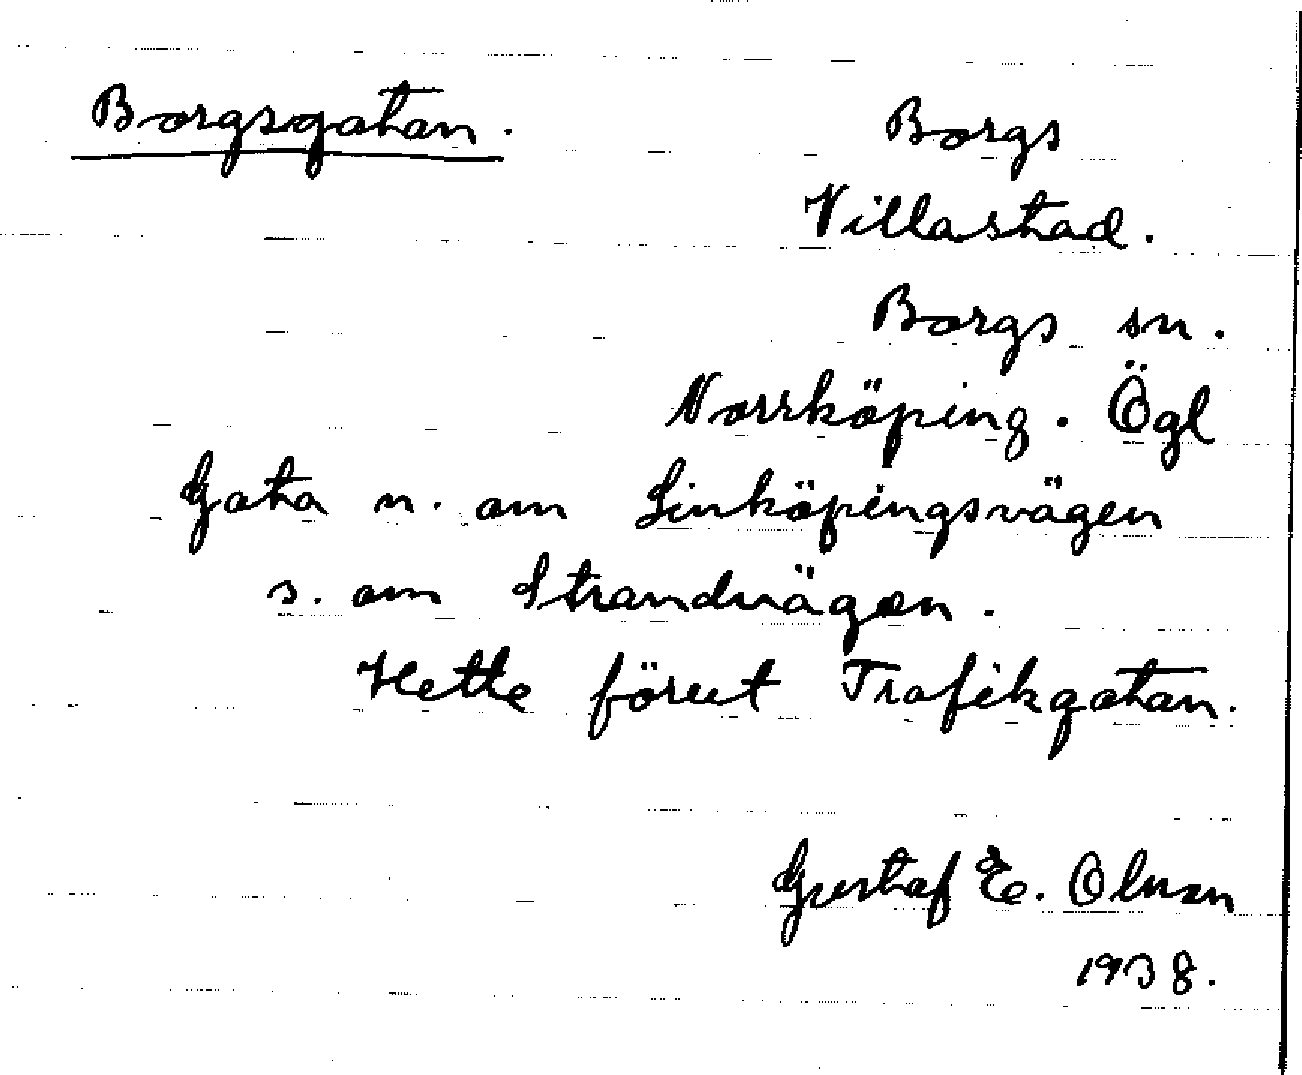 Borgsgatan.
Borgs
Villastad.
Borgs sn.
Norrköping. Ögl
Gata n. om Linköpingsvägen
s. om Strandvägen.
Hette förut Trafikgatan.
Gustaf E. Olsson
1938.